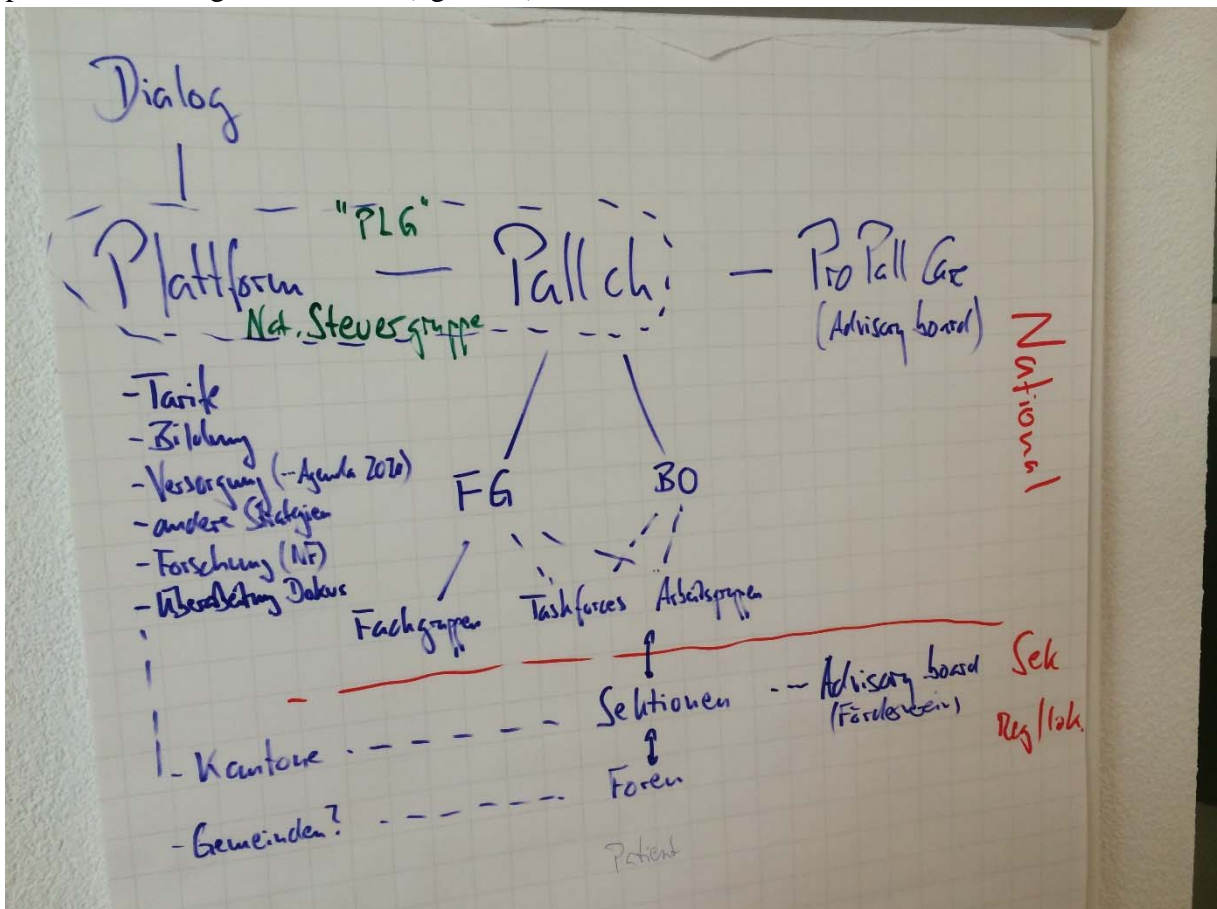 Dialog
"PLG"
Plattform — Pall ch — Pro Pall Care
(Advisory board)
Nat. Steuergruppe
National
- Tarife
- Bildung
- Versorgung (-- Agenda 2020)
- andere Strategien
- Forschung (NF)
- Überarbeitung Dokus
FG BO
Fachgruppen Taskforces Arbeitsgruppen
Sek
Reg/lok.
Sektionen --- Advisory board
(Förderverein)
- Kantone
Foren
- Gemeinden?
Patient